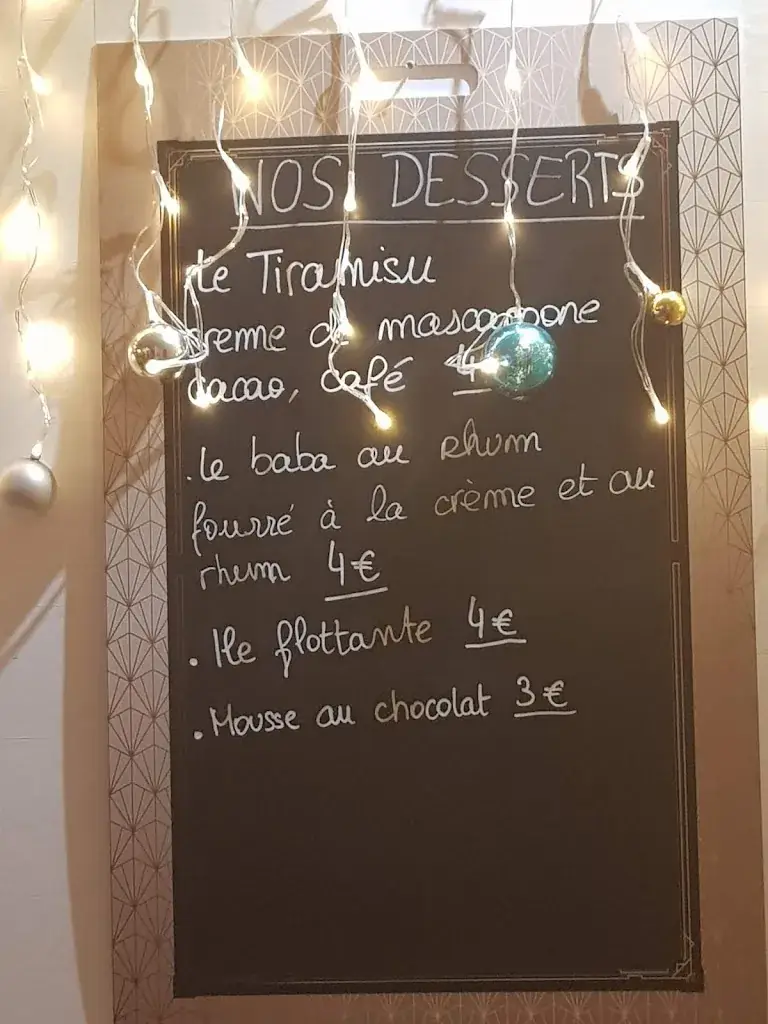 NOS DESSERTS
le Tiramisu
creme de mascarpone
cacao, café 4
.le baba au rhum
fourré à la crème et au
rhum 4€
. Ile flottante 4€
. Mousse au chocolat 3€